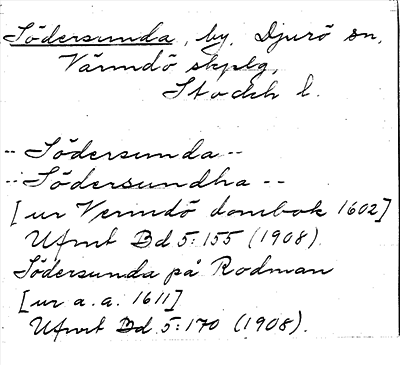 Södersunda, by, Djurö sn,
Värmdö skplg,
Stockh l.
-- Södersunda --
-- Södersundha --
[ur Vermdö dombok 1602]
Ufmt Bd 5:155 (1908).
Södersunda på Rodman
[ur a.a. 1611]
Ufmt Bd 5:170 (1908).